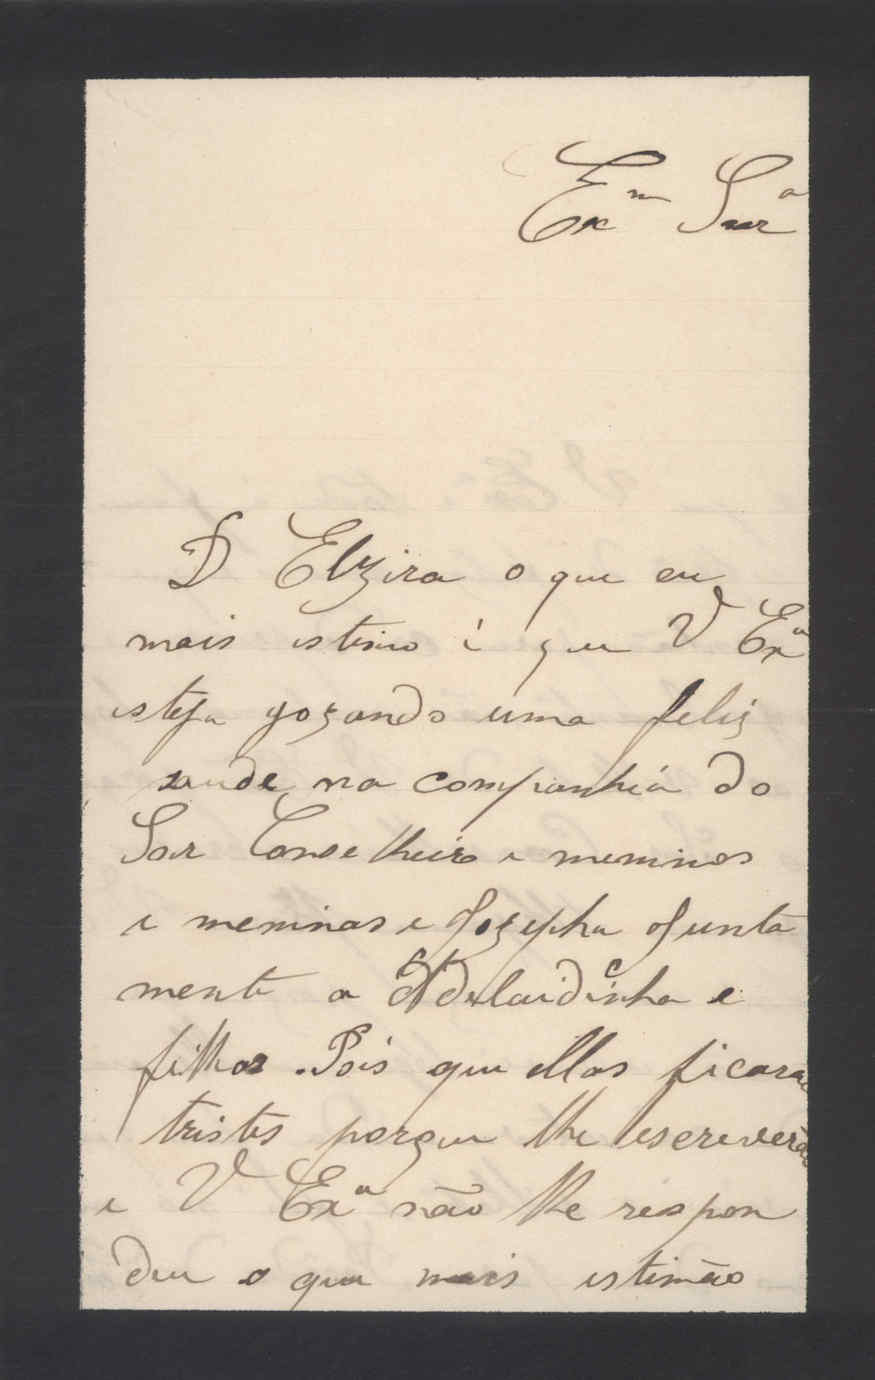 Exm Snrª
D Elzira o que eu
mais estimo é que V Exª
esteja gozando uma feliz
saude na companhia do
Snr Conselheiro e meninos
e meninas e Jozepha Junta
mente a Adelaidinha e
filhos. Pois que ellas ficarão
tristes porque lhe escreverão
e V Exª não lhe respon
deu o que mais estimão